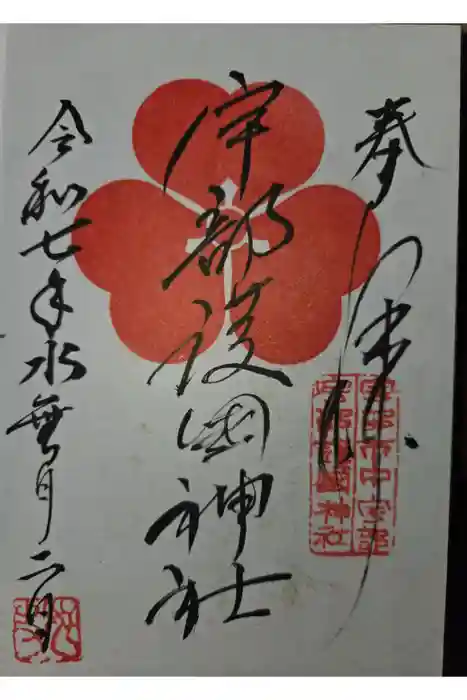 奉拝
宇部市中宇部
宇部護國神社
宇部護國神社
令和七年水無月二日